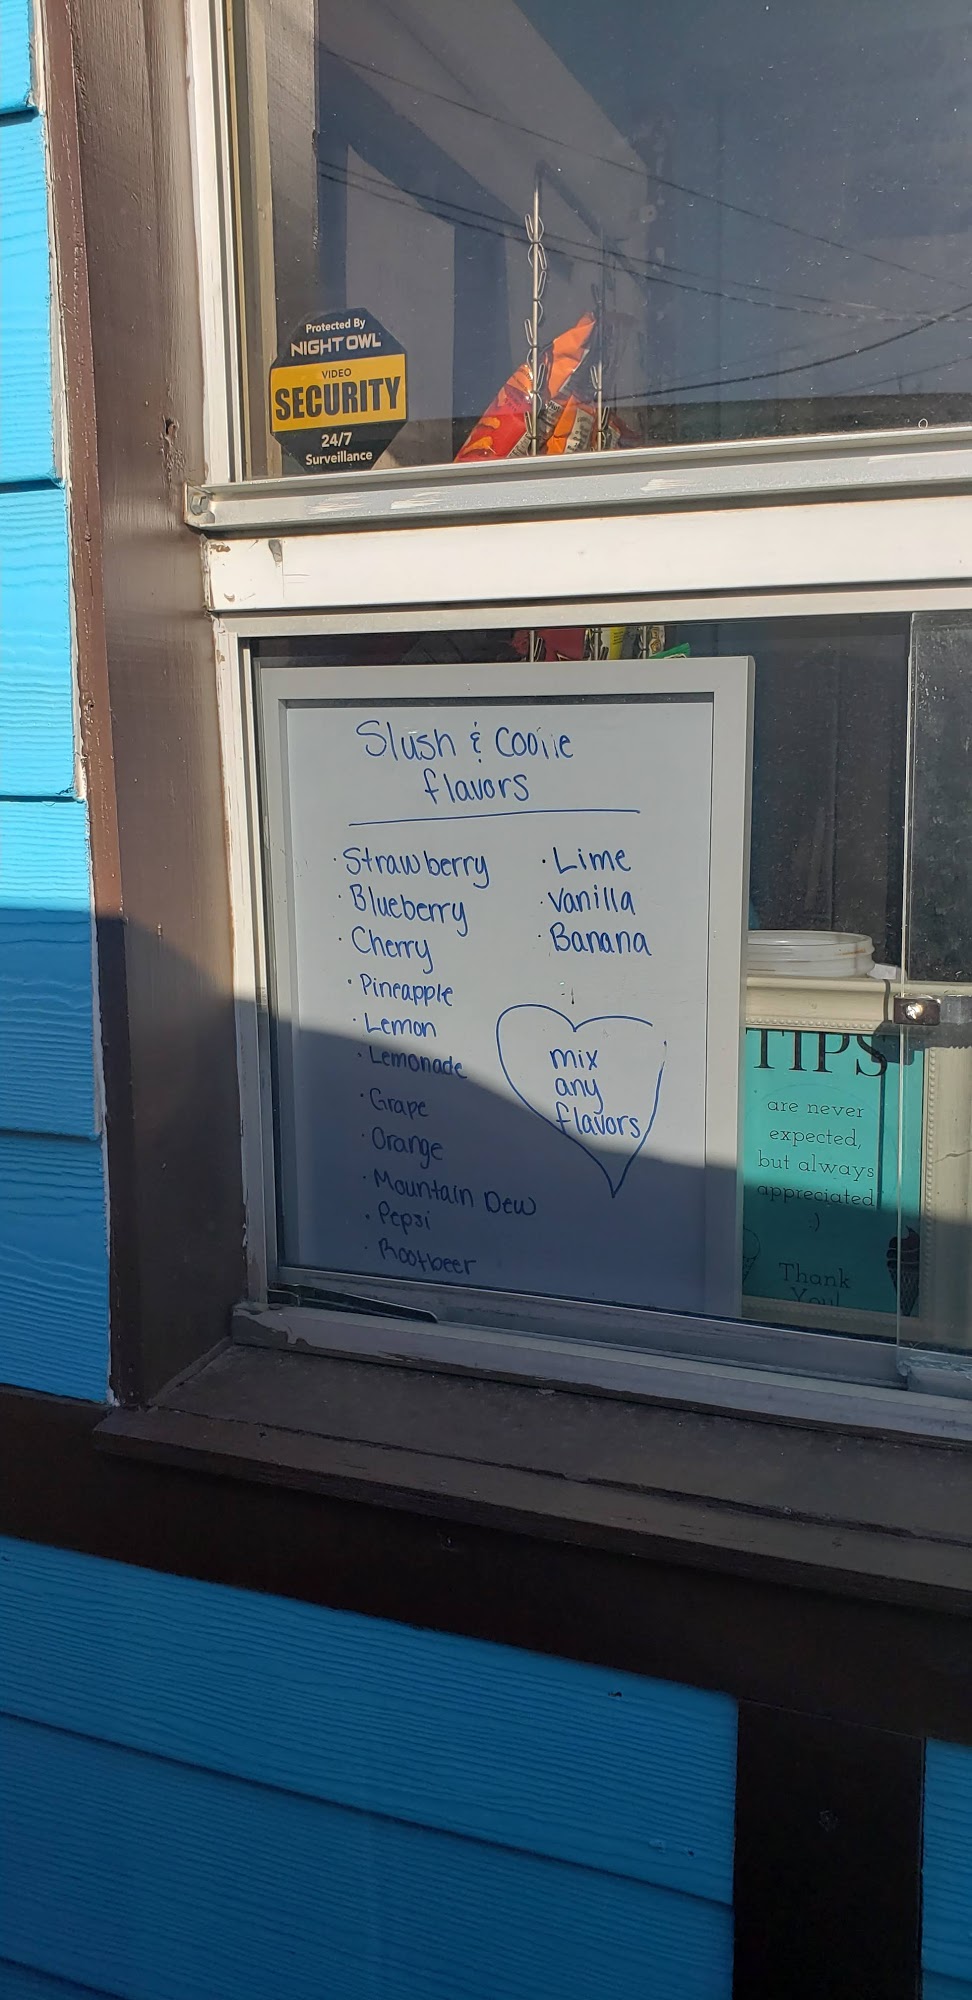 Protected By
NIGHT OWL
VIDEO
SECURITY
24/7
Surveillance
Slush & Coolie
flavors
· Strawberry
· Blueberry
· Cherry
· Pineapple
· Lemon
· Lemonade
· Grape
· Orange
· Mountain Dew
· Pepsi
· Rootbeer
· Lime
· Vanilla
· Banana
mix
any
flavors
TIPS
are never
expected,
but always
appreciated
:)
Thank
You!